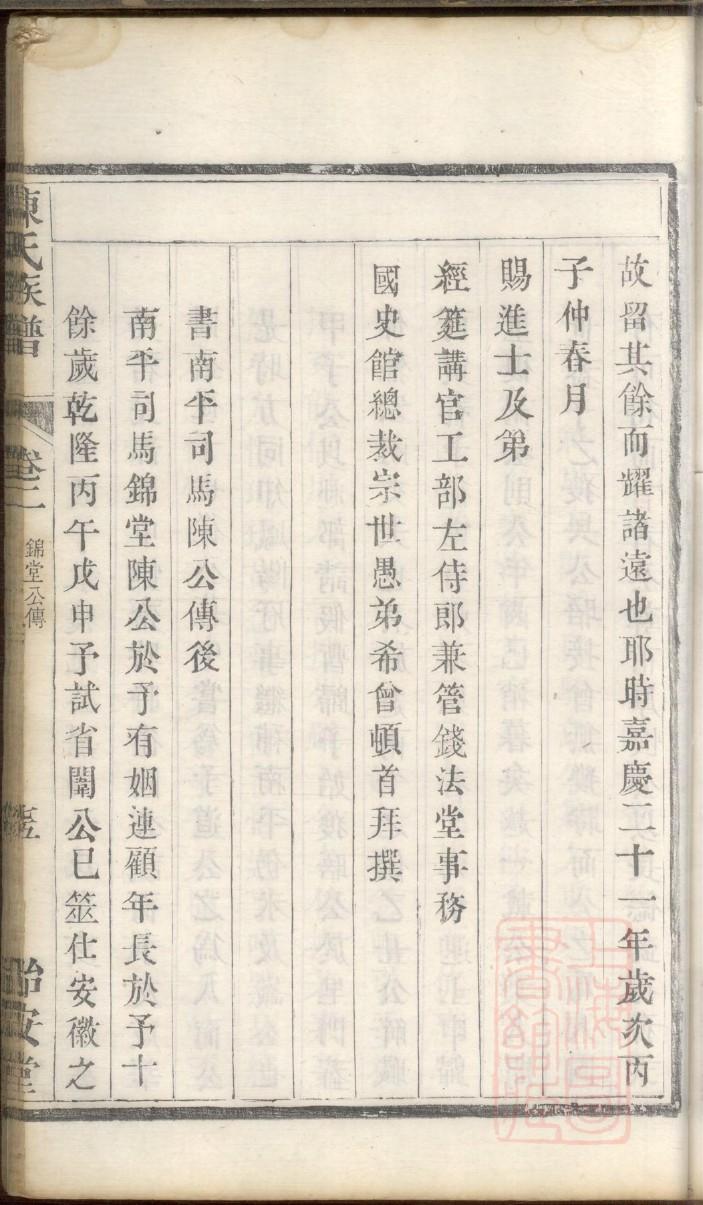 故留其餘而耀諸遠也耶時嘉慶二十一年歲次丙
子仲春月
賜進士及第
經筵講官工部左侍郎兼管錢法堂事務
國史館總裁宗世愚弟希曾頓首拜撰
書南平司馬陳公傳後
南平司馬錦堂陳公於予有姻連顧年長於予十
餘歲乾隆丙午戊申予試省闈公已筮仕安徽之
陳氏族譜
卷二
錦堂公傳